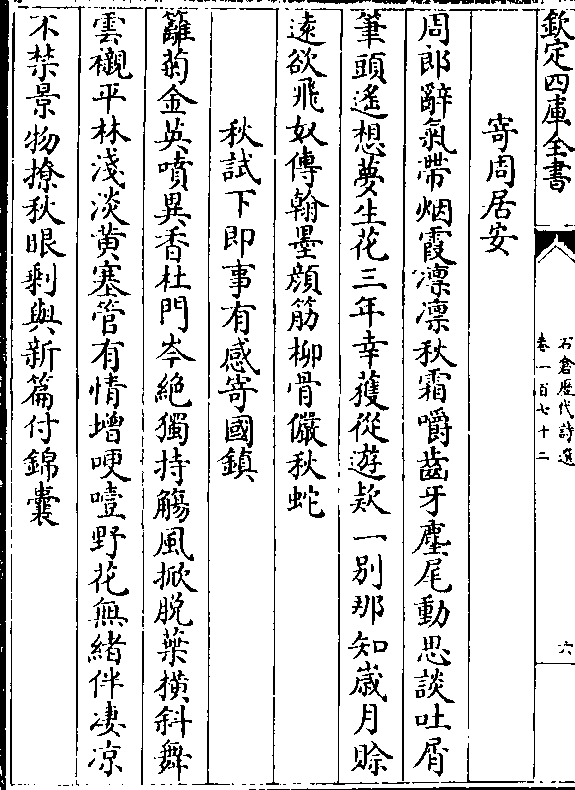 欽定四庫全書
石倉歴代詩選
卷一百七十二
六
寄周居安
周郎辭氣帶烟霞凛凛秋霜嚼齒牙麈尾動思談吐屑
筆頭遙想夢生花三年幸獲從遊欵一别那知嵗月賒
逺欲飛奴傳翰墨顔筋柳骨儼秋蛇
秋試下即事有感寄國鎮
籬菊金英噴異香杜門岑絶獨持觴風掀脱葉横斜舞
雲襯平林淺淡黄塞管有情增哽噎野花無緒伴凄凉
不禁景物撩秋眼剩與新篇付錦囊